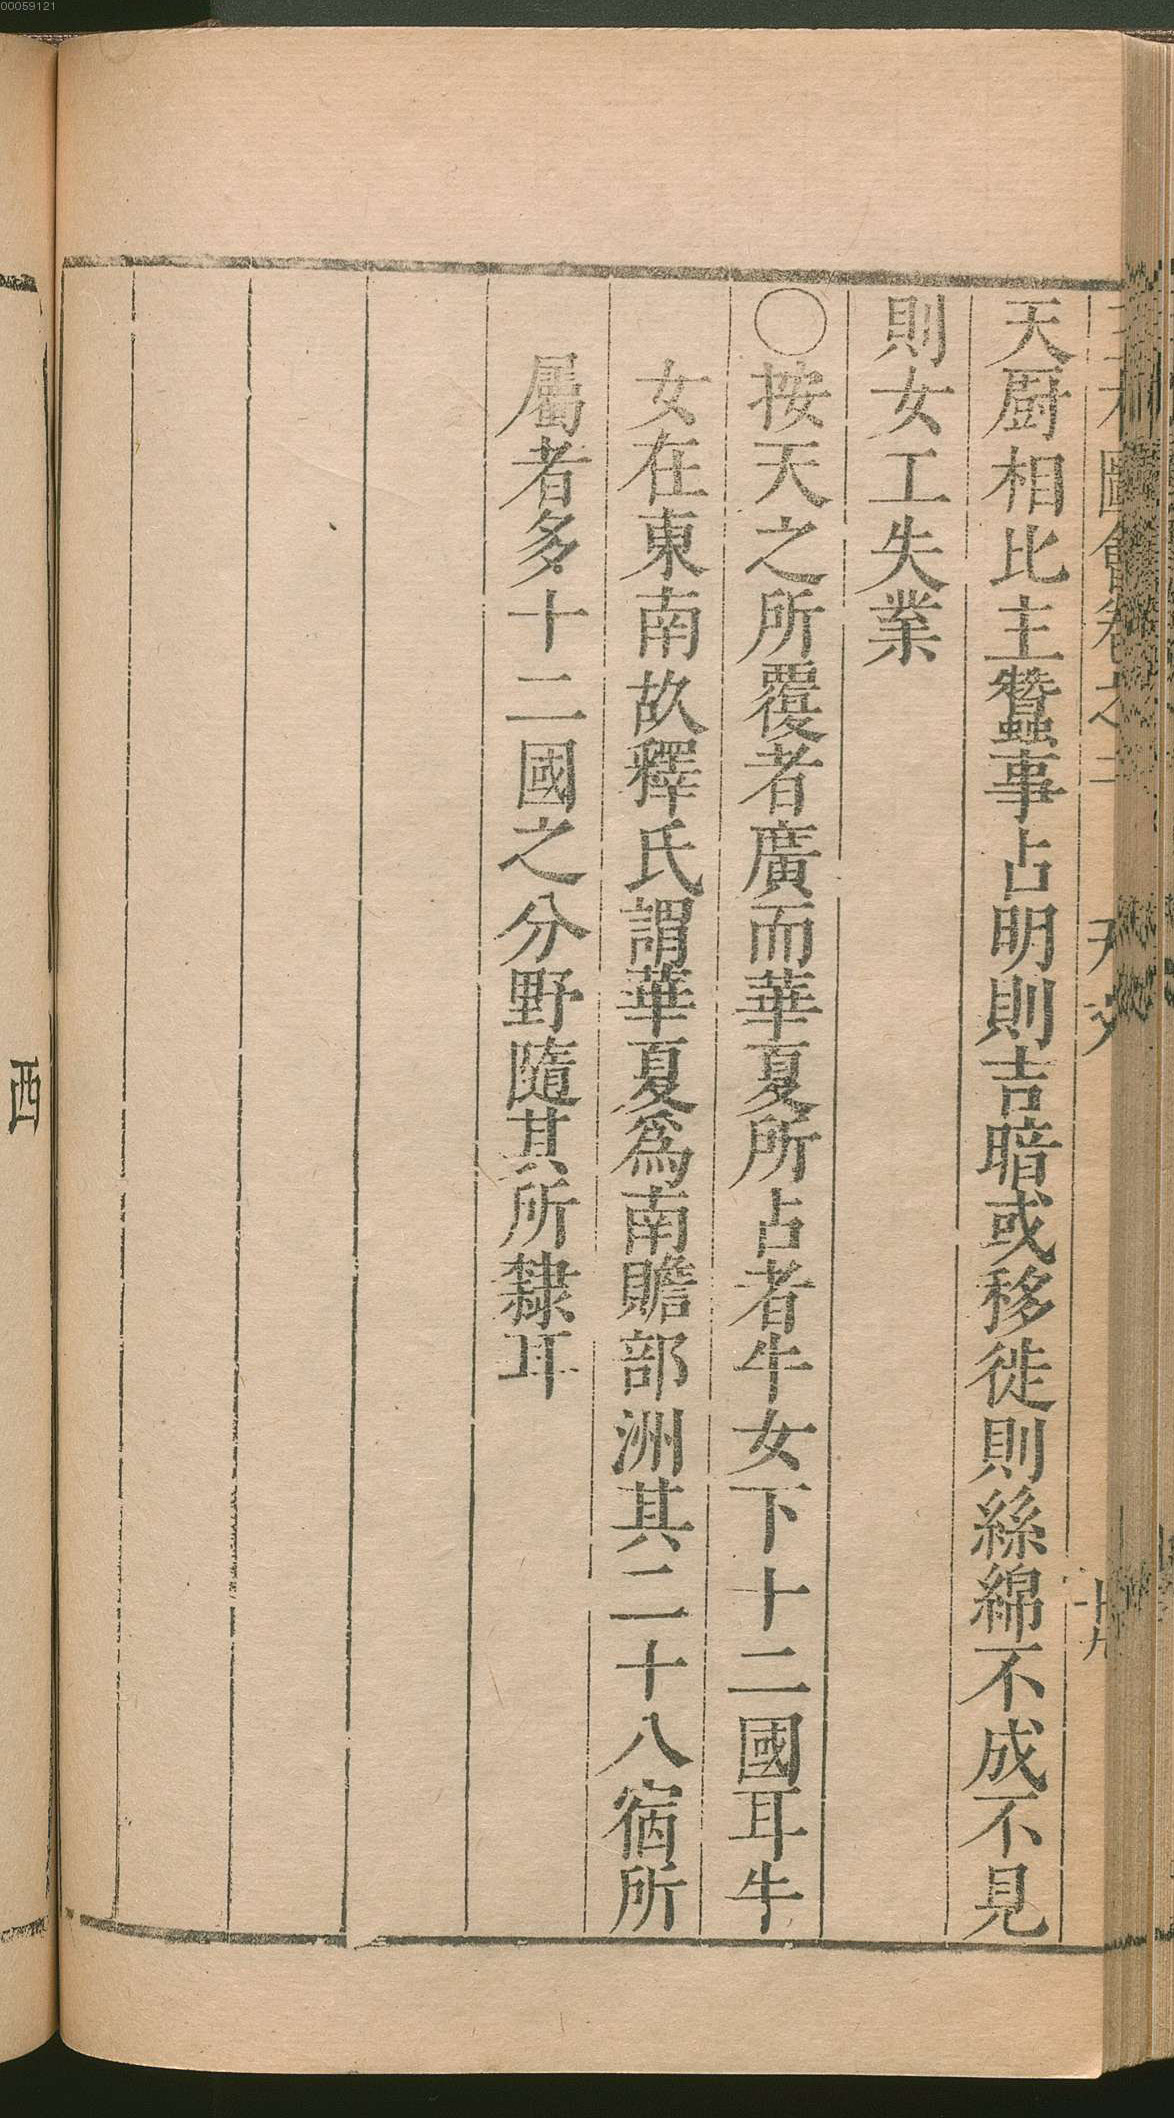 天厨相比主蠶事占明則吉暗或移徙則絲綿不成不見
則女工失業
〇按天之所覆者廣而華夏所占者牛女下十二國耳牛
女在東南故釋氏謂華夏爲南贍部洲其二十八宿所
屬者多十二國之分野隨其所隸耳
西
00059121